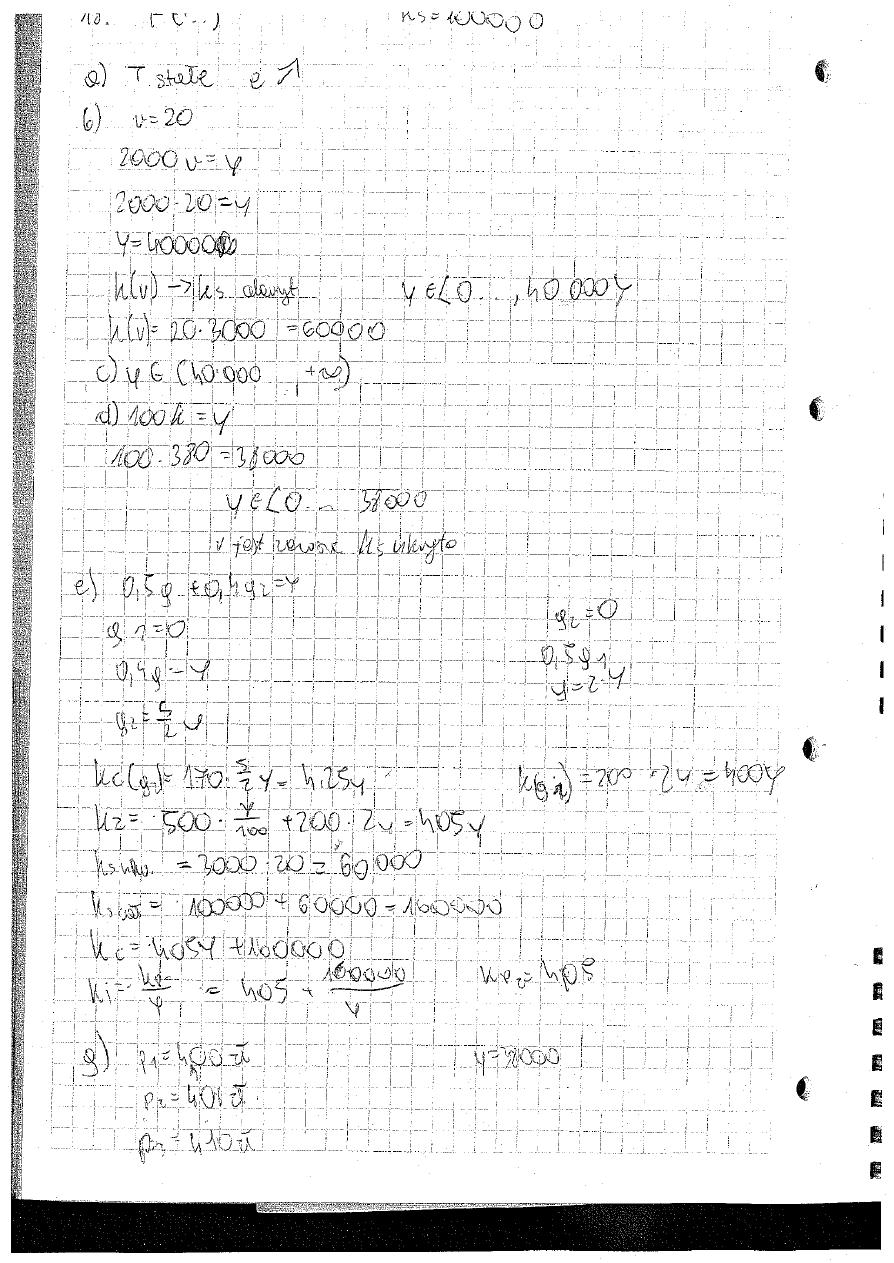 10. F(...) Ks=100000
a) T stałe e ↗
b) v=20
2000 v = y
2000·20=y
y=40000
k(v) → ks
y ∈ [0..., 40 000]
k(v)= 20·3000 = 60000
c) y ∈ (40·000 , +∞)
d) 100k = y
100·380=38000
y ∈ [0 ... 38000
v jest zawsze ks
e) 0,5g + 0,4g2=y
g1=0
0,4g = y
g2= 5/2 y
g2=0
0,5g1
y=2·y
Kc(g2)= 170·5/2 y= 425y
K(g1)=200·2y=400y
Kz= 500· y/100 +200·2y=405y
= 3000·20 = 60 000
Ks cał= 100000 + 60000=160000
Kc= 405y +160000
Ki= kc/y = 405 + 160000/y
405
g) p1=400 zł
y=38000
zł
p3=410 zł